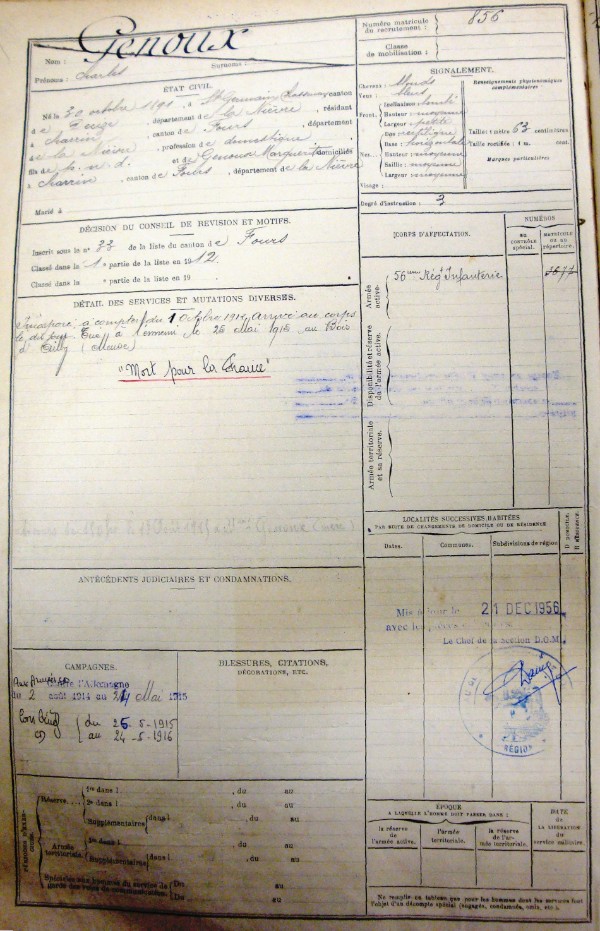 Nom : Genoux
Surnoms :
Prénoms : Charles
Numéro matricule du recrutement : 856
Classe de mobilisation :
ÉTAT CIVIL.
Né le 30 octobre 1891, à St Germain Chassenay canton
de Decize, département de la Nièvre, résidant
à Charrin, canton de Fours, département
de la Nièvre, profession de domestique
fils de p. n. d. et de Genoux Marguerite domiciliés
à Charrin canton de Fours, département de la Nièvre
Marié à
SIGNALEMENT.
Cheveux : blonds
Yeux : bleus
Front Inclinaison
Hauteur moyenne
Largeur petite
Nez Dos rectiligne
Base horizontale
Hauteur moyenne
Saillie moyenne
Largeur moyenne
Visage :
Renseignements physionomiques complémentaires
Taille : 1 mètre 63 centimètres
Taille rectifiée : 1 m. cent.
Marques particulières
Degré d'instruction : 3
DÉCISION DU CONSEIL DE REVISION ET MOTIFS.
Inscrit sous le n° 33 de la liste du canton de Fours
Classé dans la 1e partie de la liste en 1912.
Classé dans la e partie de la liste en 19
DÉTAIL DES SERVICES ET MUTATIONS DIVERSES.
à compter du 1 Octobre 191 Arrivé au corps
le dit jour. Tué à l'ennemi le 25 Mai 1915 au Bois
d'Ailly (Meuse)
"Mort pour la France"
Genoux (mère)
CORPS D'AFFECTATION.
NUMÉROS
au contrôle spécial.
MATRICULE OU AU répertoire.
Armée active.
56ème Rég't Infanterie
Disponibilité et réserve de l'armée active.
Armée territoriale et sa réserve.
LOCALITÉS SUCCESSIVES HABITÉES
PAR SUITE DE CHANGEMENTS DE DOMICILE OU DE RÉSIDENCE
Dates.
Communes.
Subdivisions de région.
D domicile.
R résidence.
ANTÉCÉDENTS JUDICIAIRES ET CONDAMNATIONS.
Mis à jour le 21 DEC 1956
avec les pièces
Le Chef de la section D.O.M.
RÉGION
CAMPAGNES.
Contre l'Allemagne
du 2 août 1914 au 24 Mai 1915
du 25-5-1915
au 24-5-1916
BLESSURES, CITATIONS,
DÉCORATIONS, ETC.
Réserve 1re dans l , du au
2e dans l , du au
Supplémentaires dans l , du au
Armée territoriale. 1re dans l , du au
Supplémentaires dans l , du au
Spéciales aux hommes du service de garde des voies de communication. Du au
Du au
ÉPOQUE
A LAQUELLE L'HOMME DOIT PASSER DANS :
la réserve de l'armée active.
l'armée territoriale.
la réserve de l'armée territoriale.
DATE
de
LA LIBÉRATION
du
service militaire.
Ne remplir ce tableau que pour les hommes dont les services font
l'objet d'un décompte spécial (engagés, condamnés, omis, etc.).